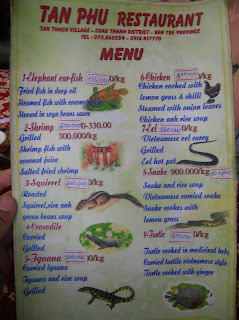 TAN PHU RESTAURANT
TAN THACH VILLAGE - CHAU THANH DISTRICT - BEN TRE PROVINCE
TEL : 075.860354 - 0918.417770
MENU
1-Elephant ear-fish /kg
Fried fish in deep oil
Steamed fish with coconut
Stewed in soya beans sauce
2-Shrimp 0-330.000
Grilled 300.000/kg
Shrimp fish with
coconut juice
Salted fried shrimp
3-Squirrel 0/kg
Roasted
Squirrel,rice and
green beans soup
4-Crocodile
Curried
Grilled
5-Iguana 0/kg
Curried iguana
Iguana and rice soup
Grilled
6-Chicken 0/kg
Chicken cooked with
lemon grass & chilli
Steamed with onion leaves
Chicken and rice soup
7-Eel 0/kg
Vietnamese eel curry
Grilled
Eel hot pot
8-Snake 900.000/kg
Snake and rice soup
Vietnamese curried snake
Snake cookes with
lemon grass
9-Turtle 0/kg
Turtle cooked in medicinal herbs
Curried turtle vietnamese style
Turtle cooked with ginger